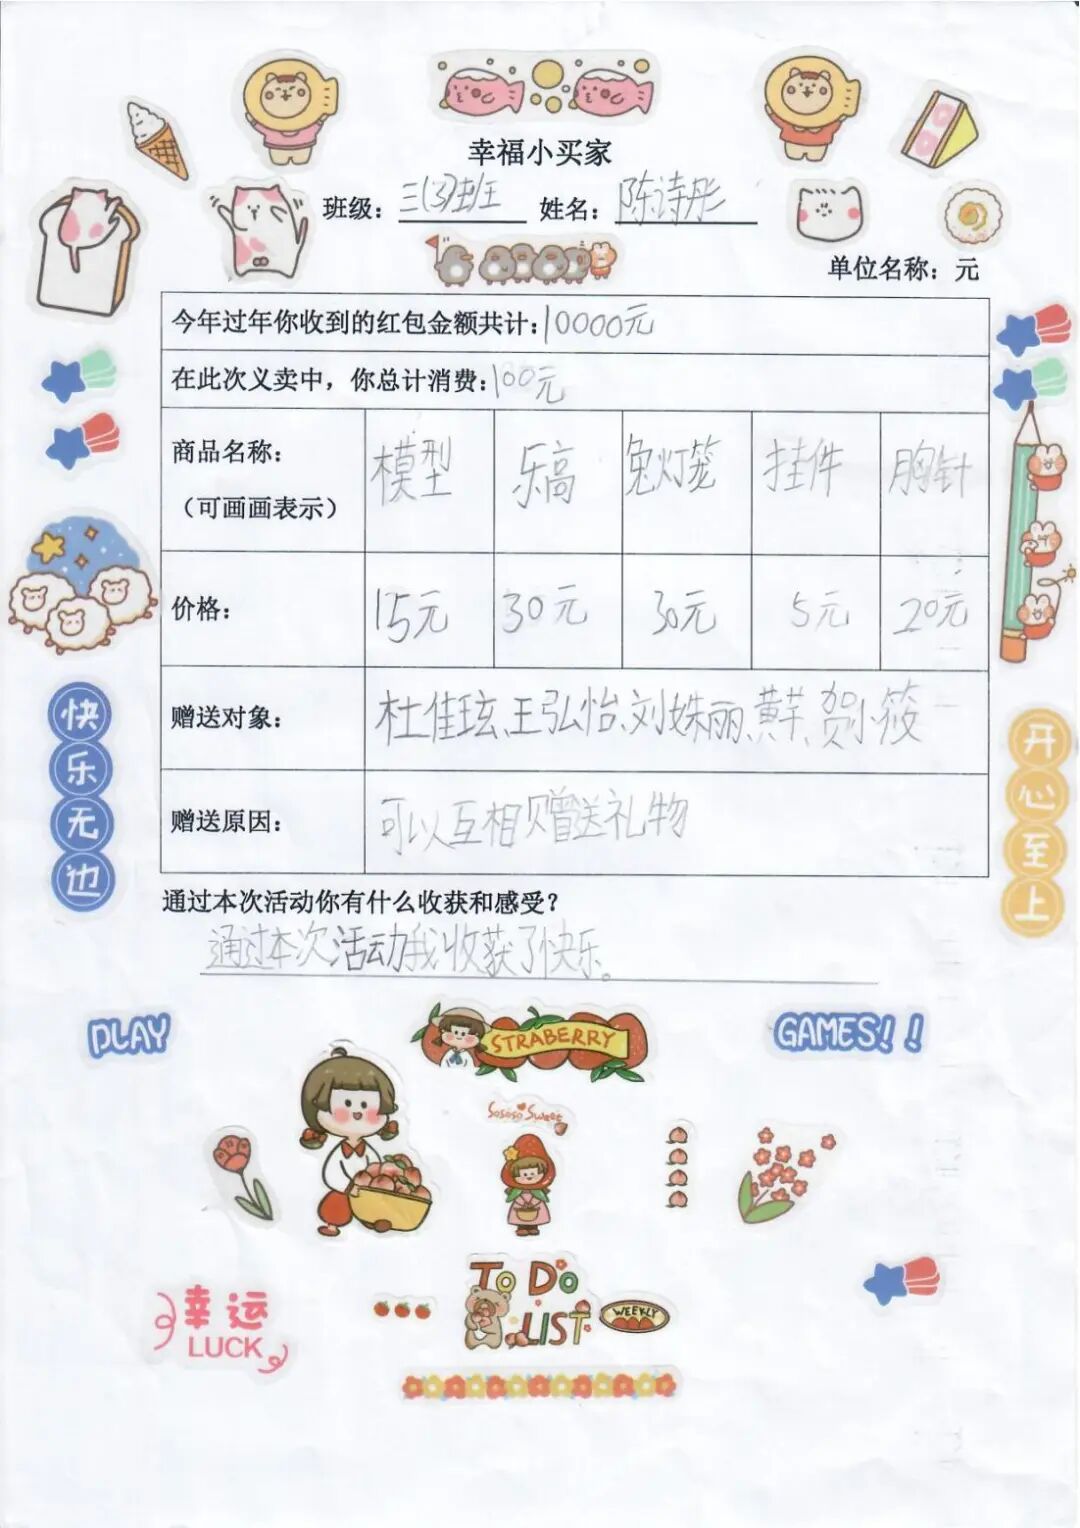 幸福小买家
班级：三(3)班 姓名：陈诗彤
单位名称：元
今年过年你收到的红包金额共计：10000元
在此次义卖中，你总计消费：100元
商品名称：
（可画画表示）
模型 乐高 兔灯笼 挂件 胸针
价格： 15元 30元 30元 5元 20元
赠送对象： 杜佳玹、王弘怡、刘姝丽、黄芊、贺小筱
赠送原因： 可以互相赠送礼物
通过本次活动你有什么收获和感受？
通过本次活动我收获了快乐。
快乐无边
开心至上
PLAY
STRABERRY
GAMES！！
Sososo Sweet
TO DO
LIST
WEEKLY
幸运
LUCK